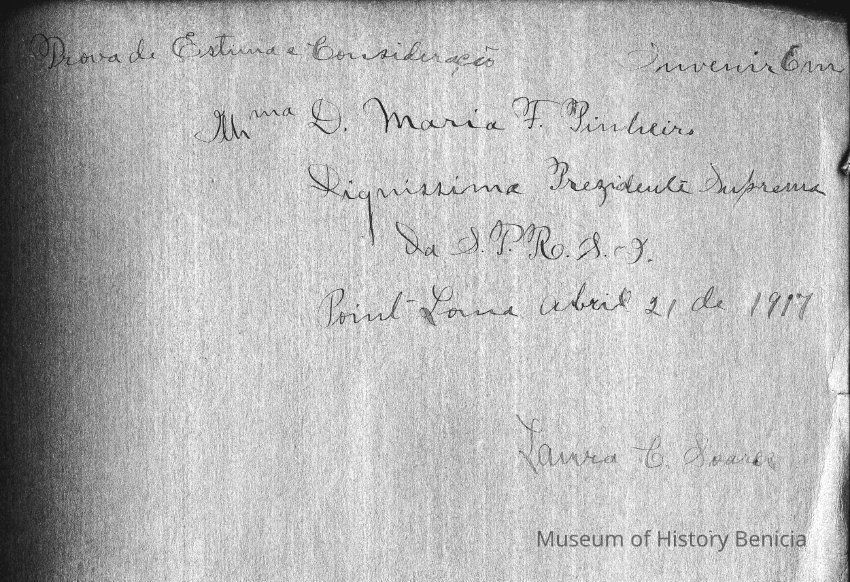 Prova de Estima e Consideração Suvenir Em
Illma D. Maria F. Pinheiro
Dignissima Prezidente Suprema
da S.P.R.S.I.
Point Loma Abril 21 de 1917
Laura C. Soares
Museum of History Benicia